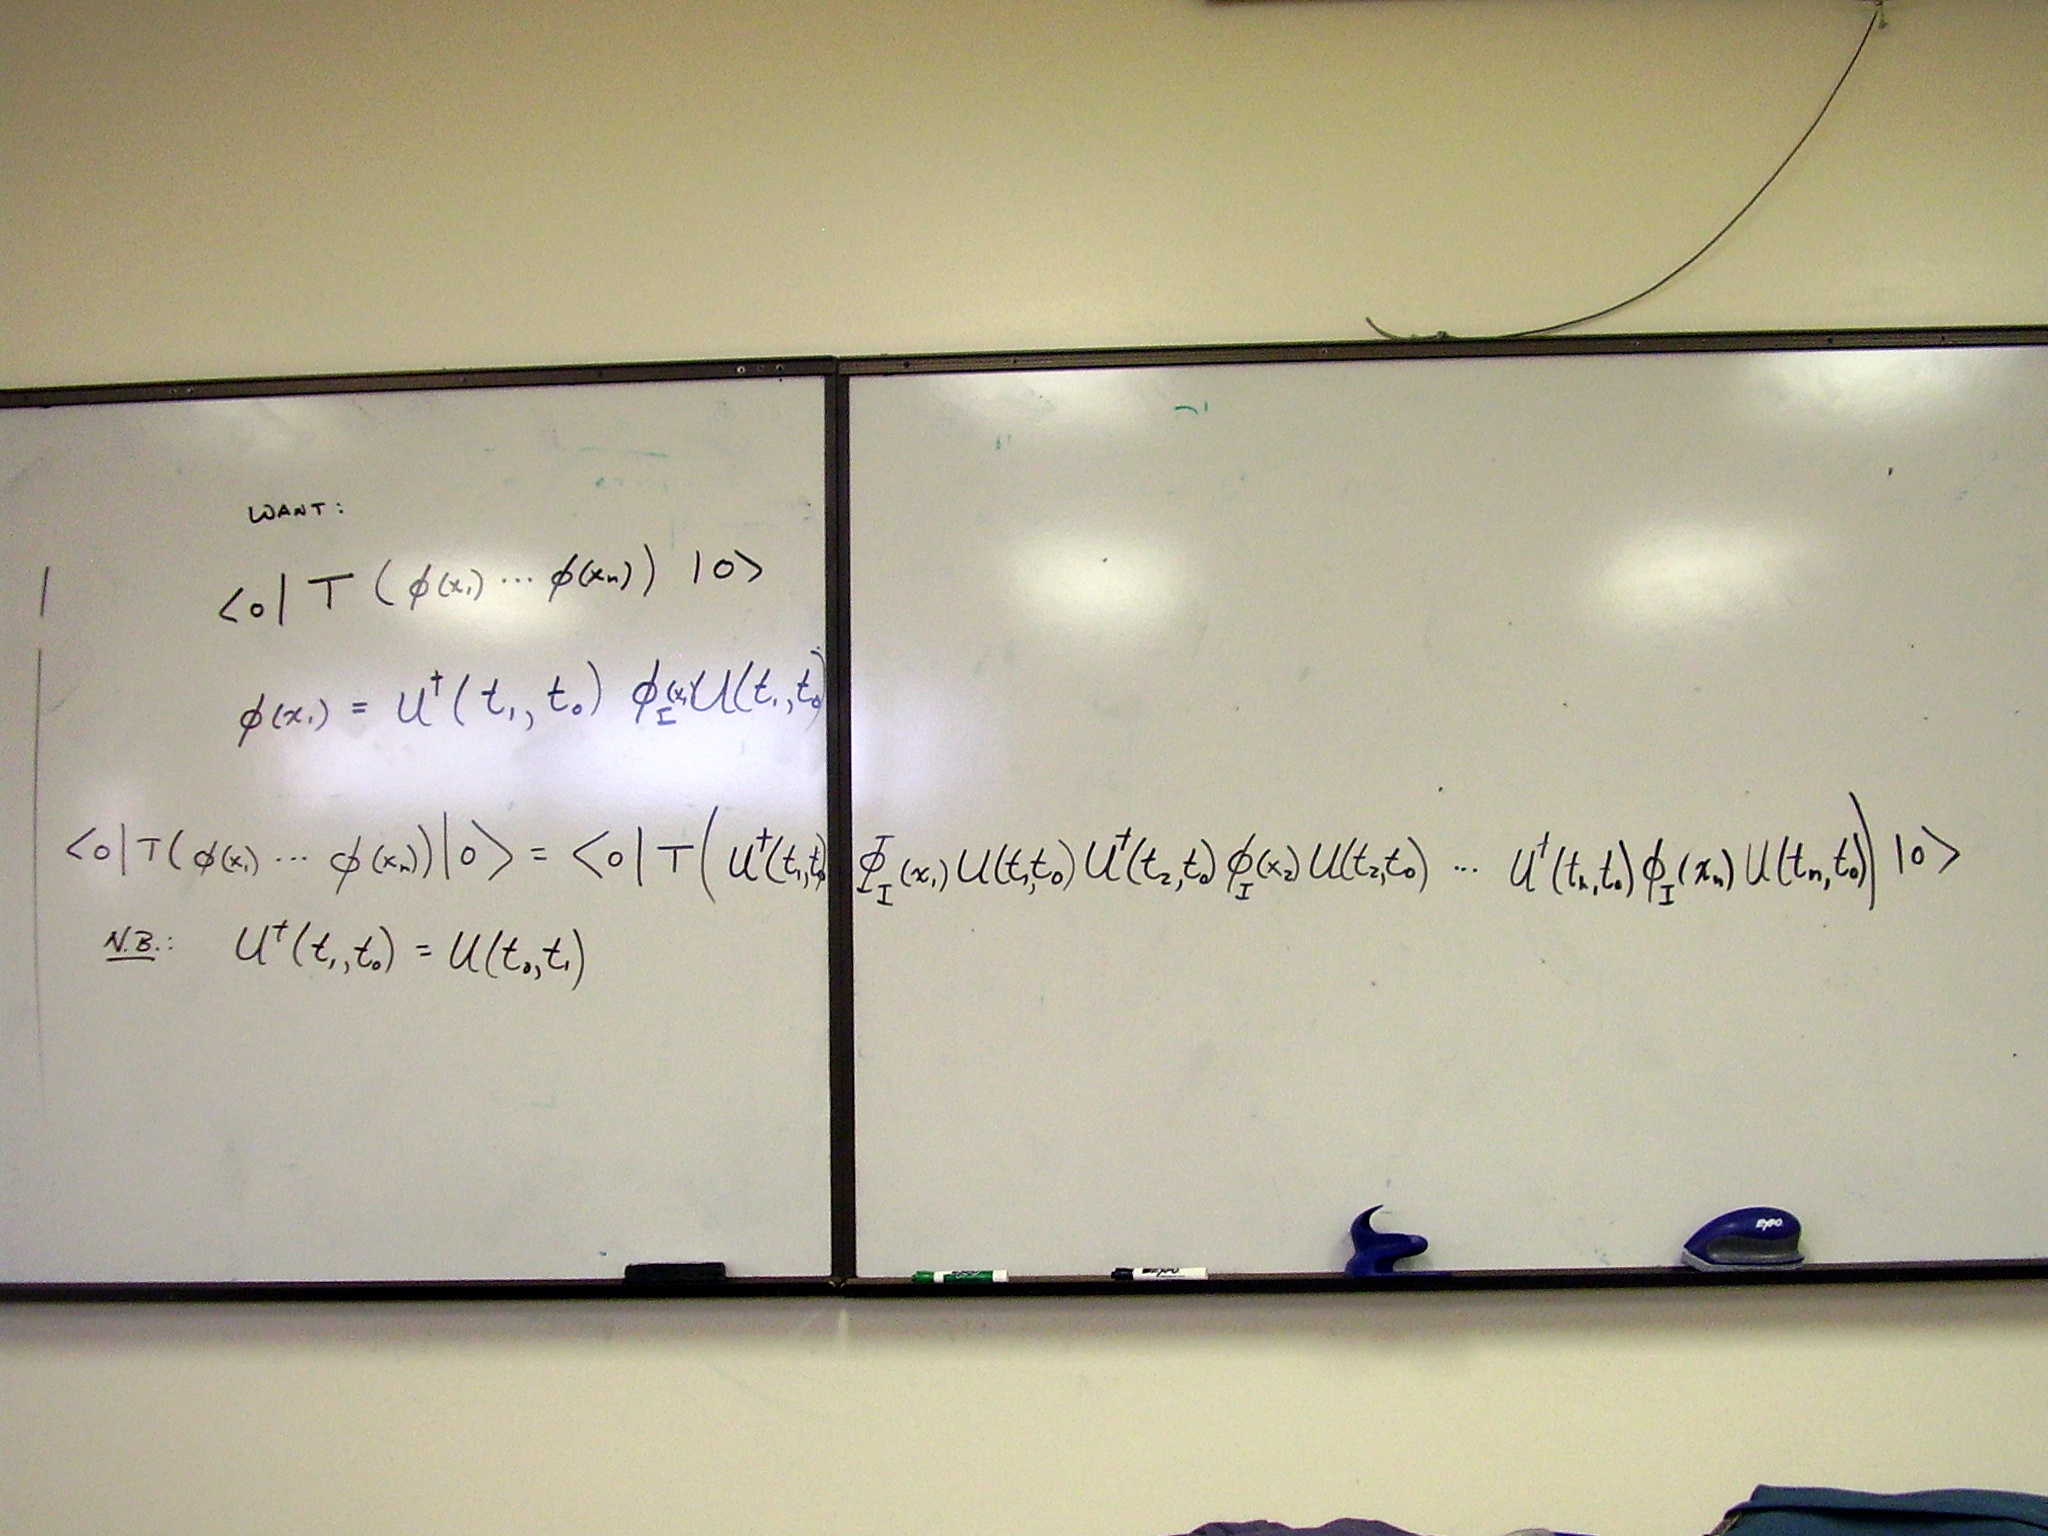 WANT:
<0| T (ϕ(x₁) ... ϕ(xₙ)) |0>
ϕ(x₁) = U†(t₁, t₀) ϕ_I(x₁) U(t₁, t₀)
<0|T(ϕ(x₁) ... ϕ(xₙ))|0> = <0| T( U†(t₁,t₀) ϕ_I(x₁) U(t₁,t₀) U†(t₂,t₀) ϕ_I(x₂) U(t₂,t₀) ... U†(tₙ,t₀) ϕ_I(xₙ) U(tₙ,t₀) ) |0>
N.B.: U†(t₁,t₀) = U(t₀,t₁)
EXPO
EXPO